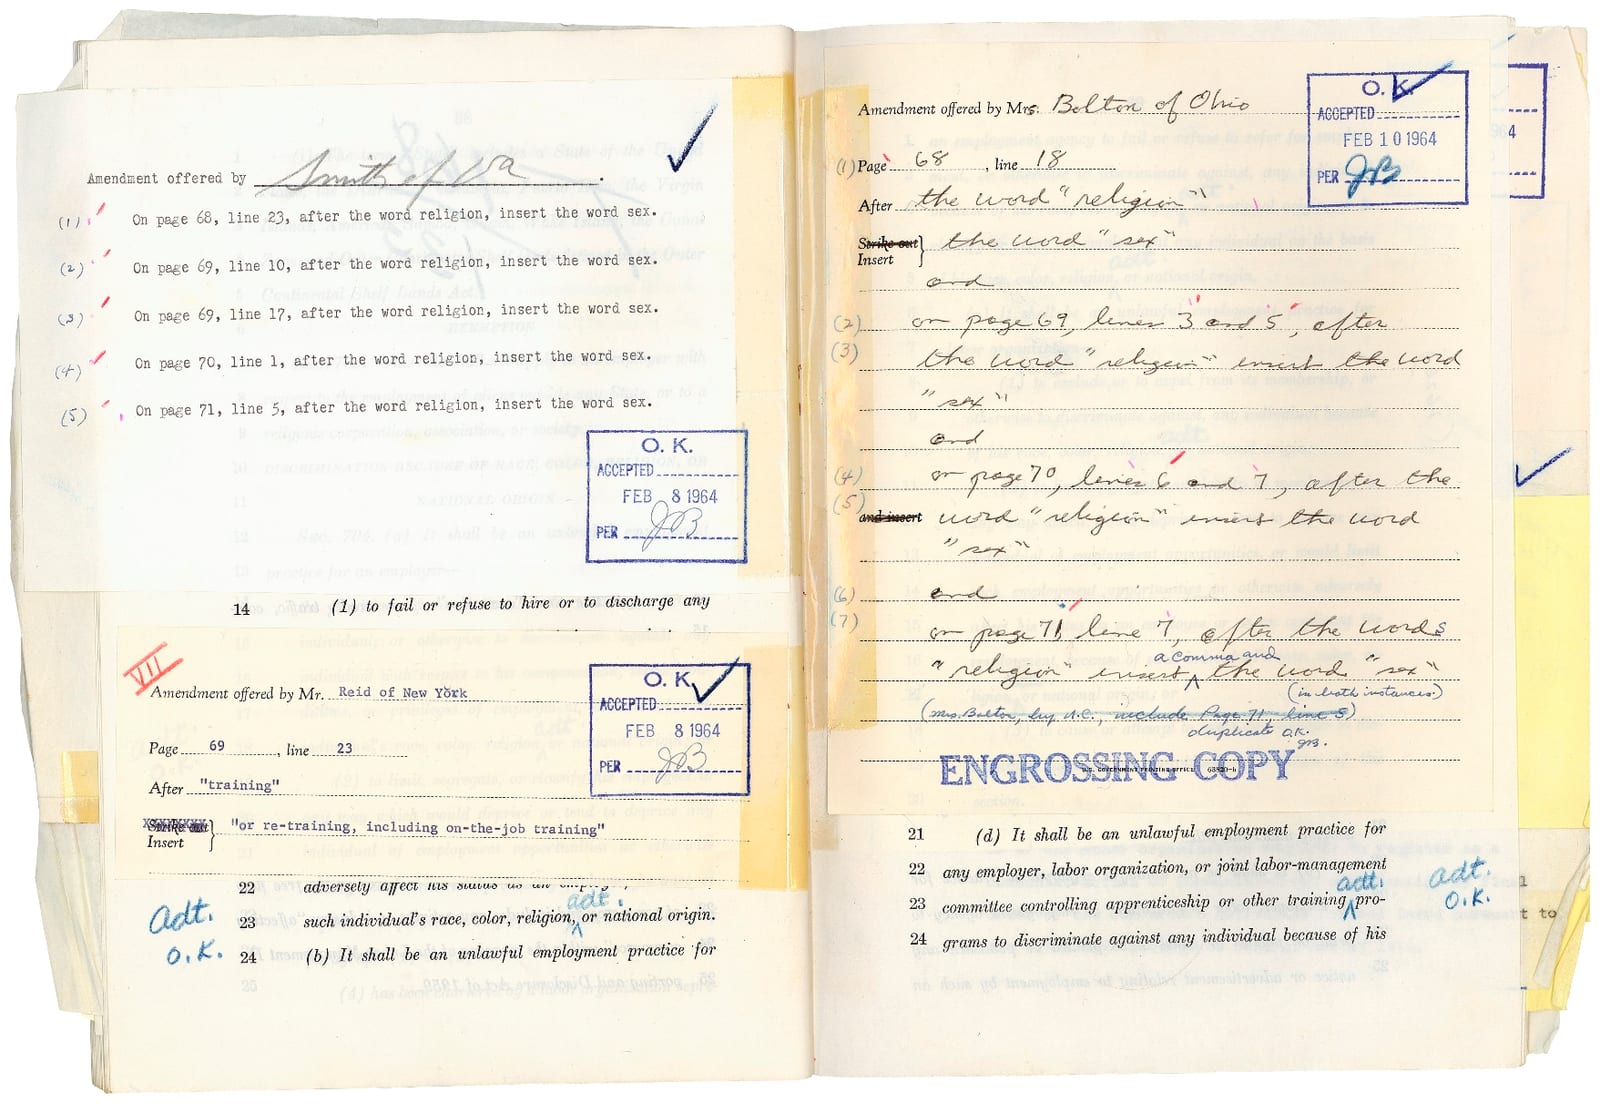 Amendment offered by Smith of Va.
(1) On page 68, line 23, after the word religion, insert the word sex.
(2) On page 69, line 10, after the word religion, insert the word sex.
(3) On page 69, line 17, after the word religion, insert the word sex.
(4) On page 70, line 1, after the word religion, insert the word sex.
(5) On page 71, line 5, after the word religion, insert the word sex.
O. K.
ACCEPTED
FEB 8 1964
PER JB
14 (1) to fail or refuse to hire or to discharge any
VII
Amendment offered by Mr. Reid of New York
Page 69, line 23
After "training"
Strike out
Insert } "or re-training, including on-the-job training"
O. K.
ACCEPTED
FEB 8 1964
PER JB
22 adversely affect his status as an
adt.
Adt. 23 such individual's race, color, religion, or national origin.
O.K. 24 (b) It shall be an unlawful employment practice for
Amendment offered by Mrs. Bolton of Ohio
(1) Page 68, line 18
After the word "religion"
Strike out
Insert } the word "sex"
and
(2) on page 69, lines 3 and 5, after
(3) the word "religion" insert the word
"sex"
and
(4) on page 70, lines 6 and 7, after the
(5) and insert word "religion" insert the word
"sex"
(6) and
(7) on page 71, line 7, after the words
a comma and
"religion" insert ^ the word "sex"
(in both instances)
(Mrs. Bolton, by U.C., include Page 71, line 5)
duplicate O.K.
JB.
O. K.
ACCEPTED
FEB 10 1964
PER JB
ENGROSSING COPY
U.S. GOVERNMENT PRINTING OFFICE
21 (d) It shall be an unlawful employment practice for
22 any employer, labor organization, or joint labor-management
adt.
23 committee controlling apprenticeship or other training ^ pro-
adt.
O.K.
24 grams to discriminate against any individual because of his
t to